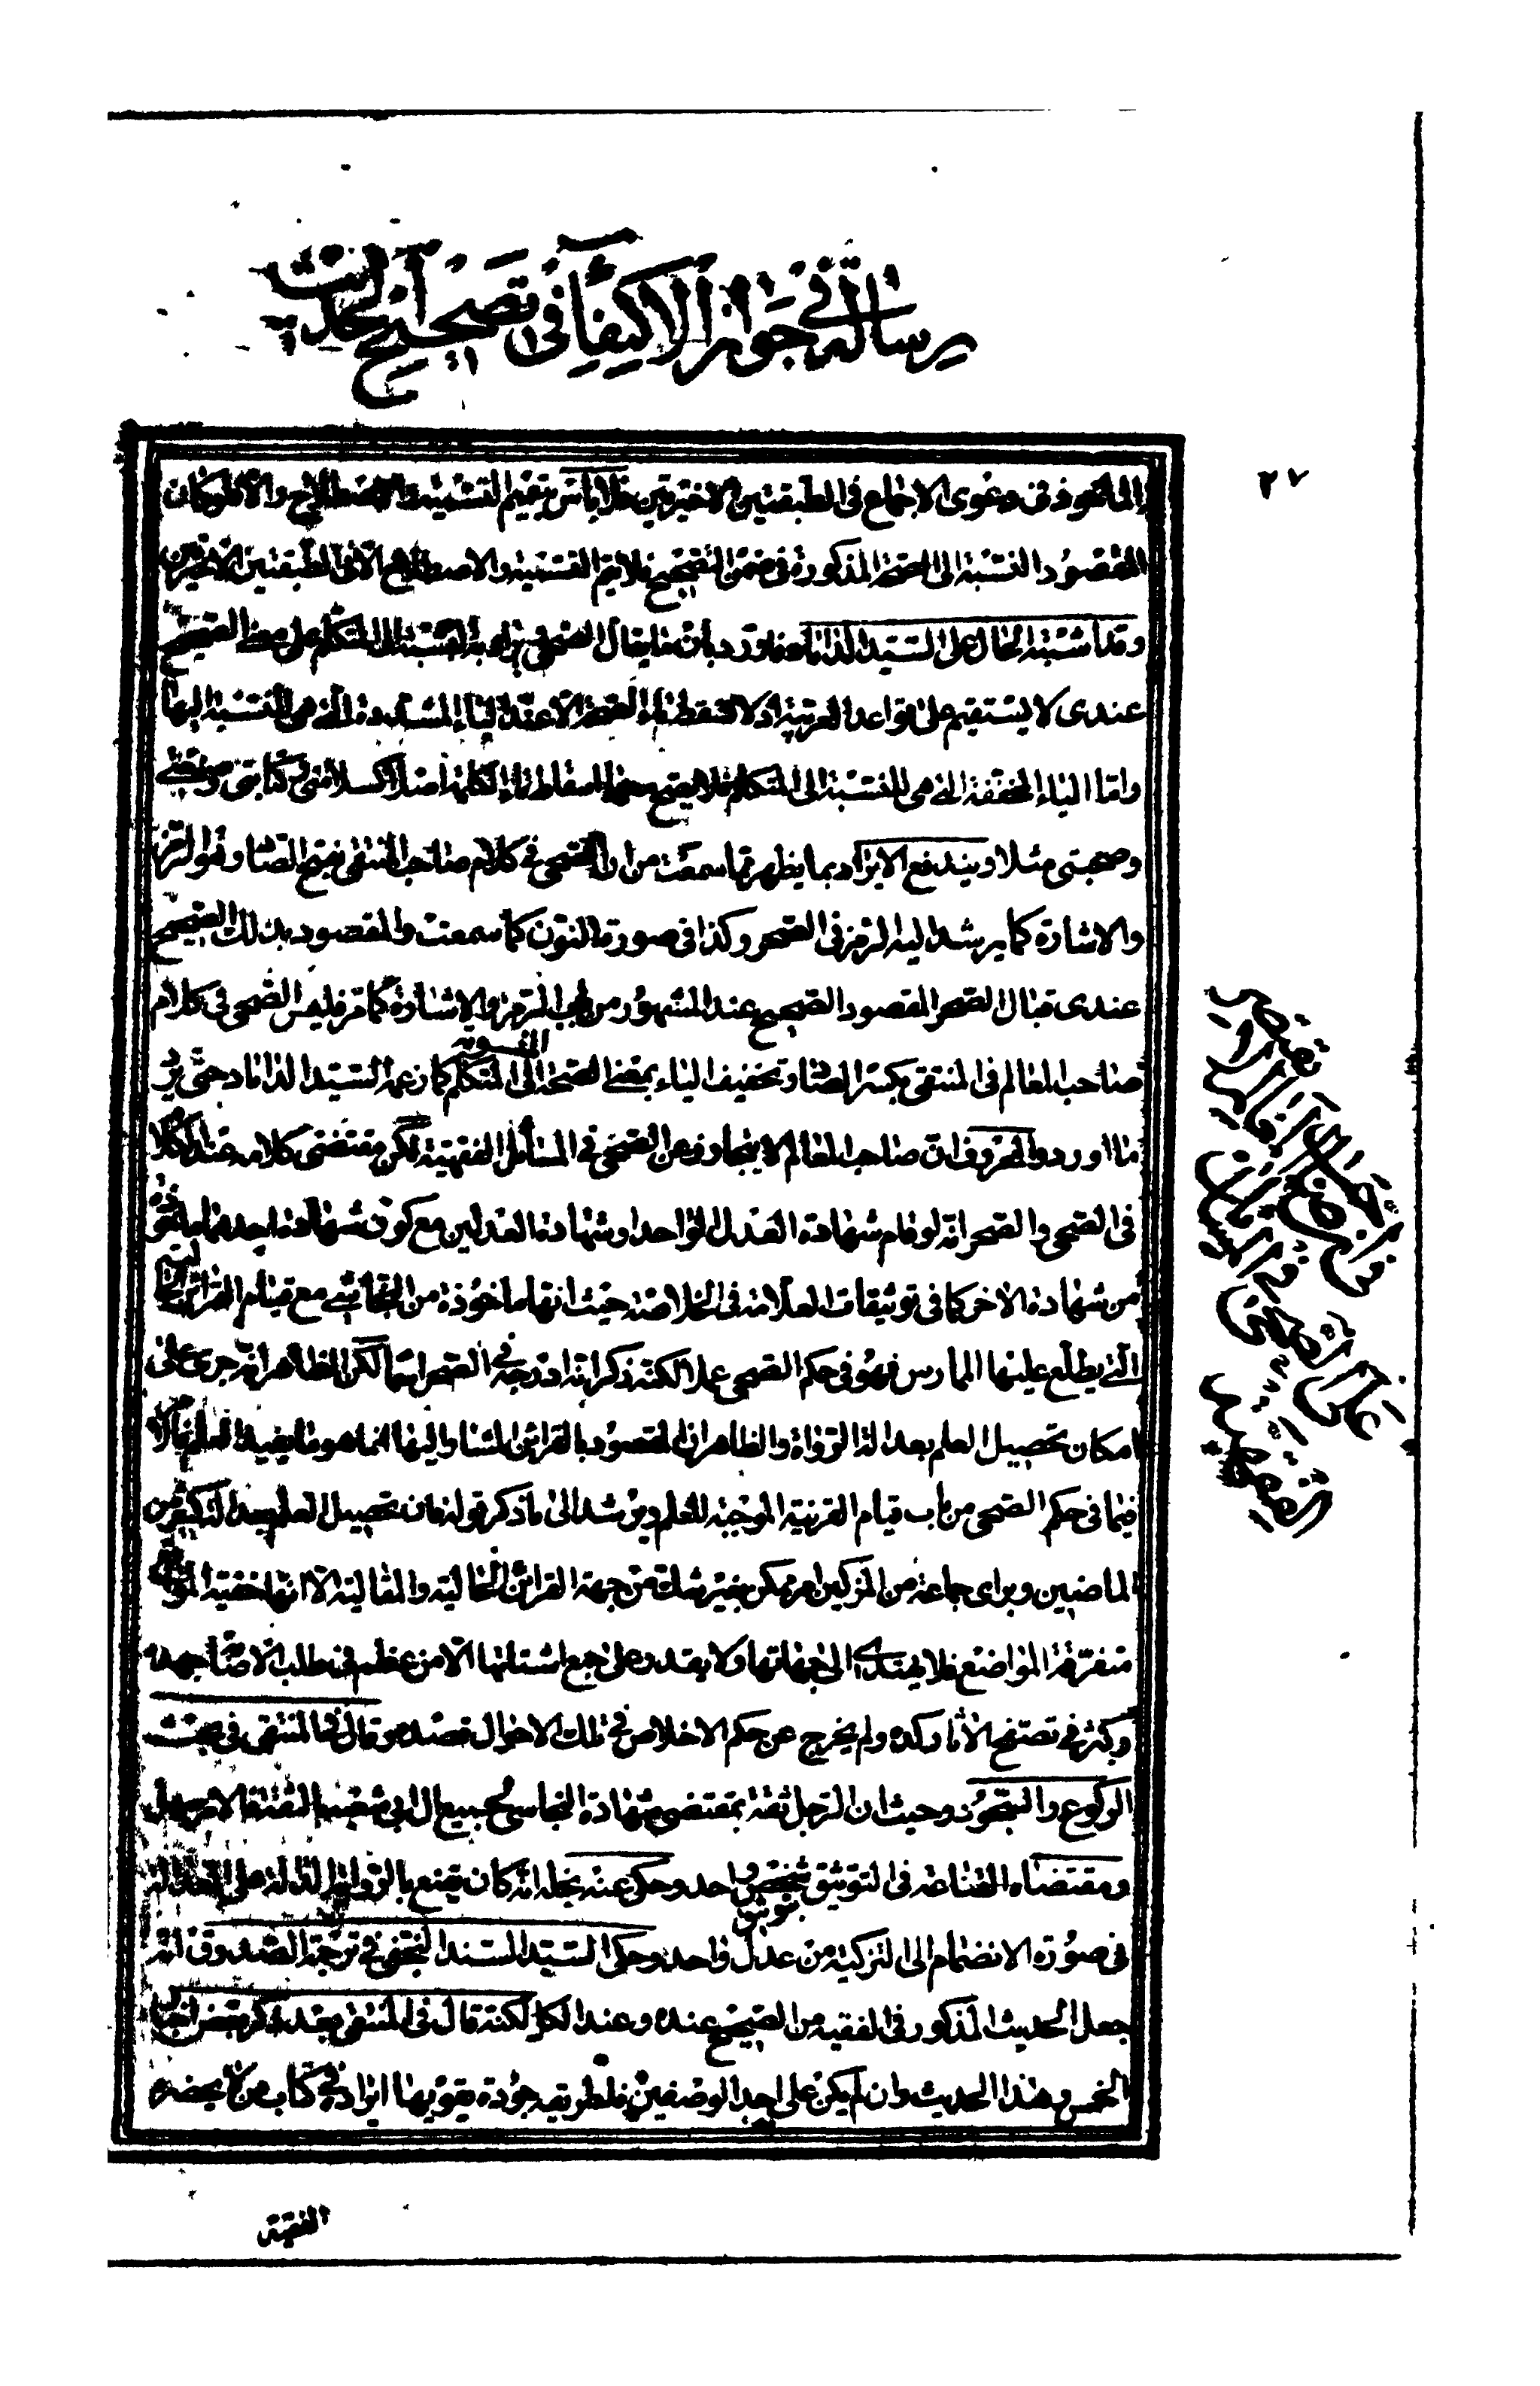 رسالة في جواز الاكتفاء في تصحيح الحديث
٢٧
الماخوذ في دعوى الاجماع في الطبقتين الاخيرتين فلا باس بتعميم التسمية والاصطلاح والا لو كان
المقصود النسبة الى الصحة المذكورة في ضمن التصحيح فلا يتم التسمية والاصطلاح الا في الطبقتين الاخيرتين
وقد اشتبه الحال على السيد الداماد فاورد بان ما يقال الصحي يراد به النسبة الى المتكلم على معنى الصحيح
عندى لا يستقيم على قواعد العربية اذ لا تسقط تاء الصحة الا عند الياء المشددة التي هي للنسبة اليها
واما الياء المخففة التي هي للنسبة الى المتكلم فلا يصح معها اسقاط تاء الكلمة اصلا كسلامتى وكتابتى وصنعتى
وصحبتى مثلا ويندفع الايراد بما يظهر مما سمعت من ان الصحي في كلام صاحب المنتقى بفتح الصاد وهو الرمز
والاشارة كما يرشد اليه الرمز فى الصحر وكذا فى صورة النون كما سمعت والمقصود بذلك الصحيح
عندى فبال الصحر المقصود الصحيح عند المشهور من باب الرمز والاشارة كما مر فليس الصحي في كلام
صاحب المعالم فى المنتقى بكسر الصاد وتخفيف الياء بمعنى الصحة المنسوبة الى المتكلم كما زعمه السيد الداماد حتى يرد
ما اورد والمعروف ان صاحب المعالم لا يتجاوز عن الصحي في المسائل الفقهية لكن مقتضى كلامه
فى الصحي والصحر انه لو قام شهادة العدل الواحد او شهادة العدلين مع كون شهادة احدهما ماخوذة
من شهادة الاخر كما فى توثيقات العلامة فى الخلاصة حيث انها ماخوذة من النجاشي مع قيام القرائن
التي يطلع عليها الممارس فهو فى حكم الصحي عملا لكنه ذكر انه ادرجه في الصحر اسما لكن الظاهر انه جرى على
امكان تحصيل العلم بعدالة الرواة والظاهر ان المقصود بالقرائن المشار اليها انما هو ما يفيد العلم
فيما فى حكم الصحي من باب قيام القرينة الموجبة للعلم ويرشد الى ما ذكر قوله فان تحصيل العلم بعدالة كثير من
الماضين وبراى جماعة من المزكين امر ممكن بغير شك من جهة القرائن الحالية والمقالية الا انها خفية المواقع
متفرقة المواضع فلا يهتدى الى جهاتها ولا يقدر على جمع اشتاتها الا من عظم فى طلب الاصابة جهده
وكثر في تصفح الاثار كده ولم يخرج عن حكم الاخلاص في تلك الاحوال قصده وقال في المنتقى فى بحث
الركوع والسجود وحيث ان الرجل ثقة بمقتضى شهادة النجاشي لجميع ال ابي شعبة بالثقة فالامر سهل
ومقتضاه القناعة فى التوثيق بتوثيق شخص واحد وحكى عنه نجله انه كان يقنع بالرواية الدالة على العدالة
فى صورة الانضمام الى التزكية من عدل واحد وحكى السيد السند النجفي في ترجمة الصدوق انه
جعل الحديث المذكور فى الفقيه من الصحيح عنده وعند الكل لكنه قال فى المنتقى بعد ذكر بعض اخبار
الخمس وهذا الحديث وان لم يكن على احد الوصفين فلطريقه جودة يقويها ايراده في كتاب من لا يحضره
الفقيه